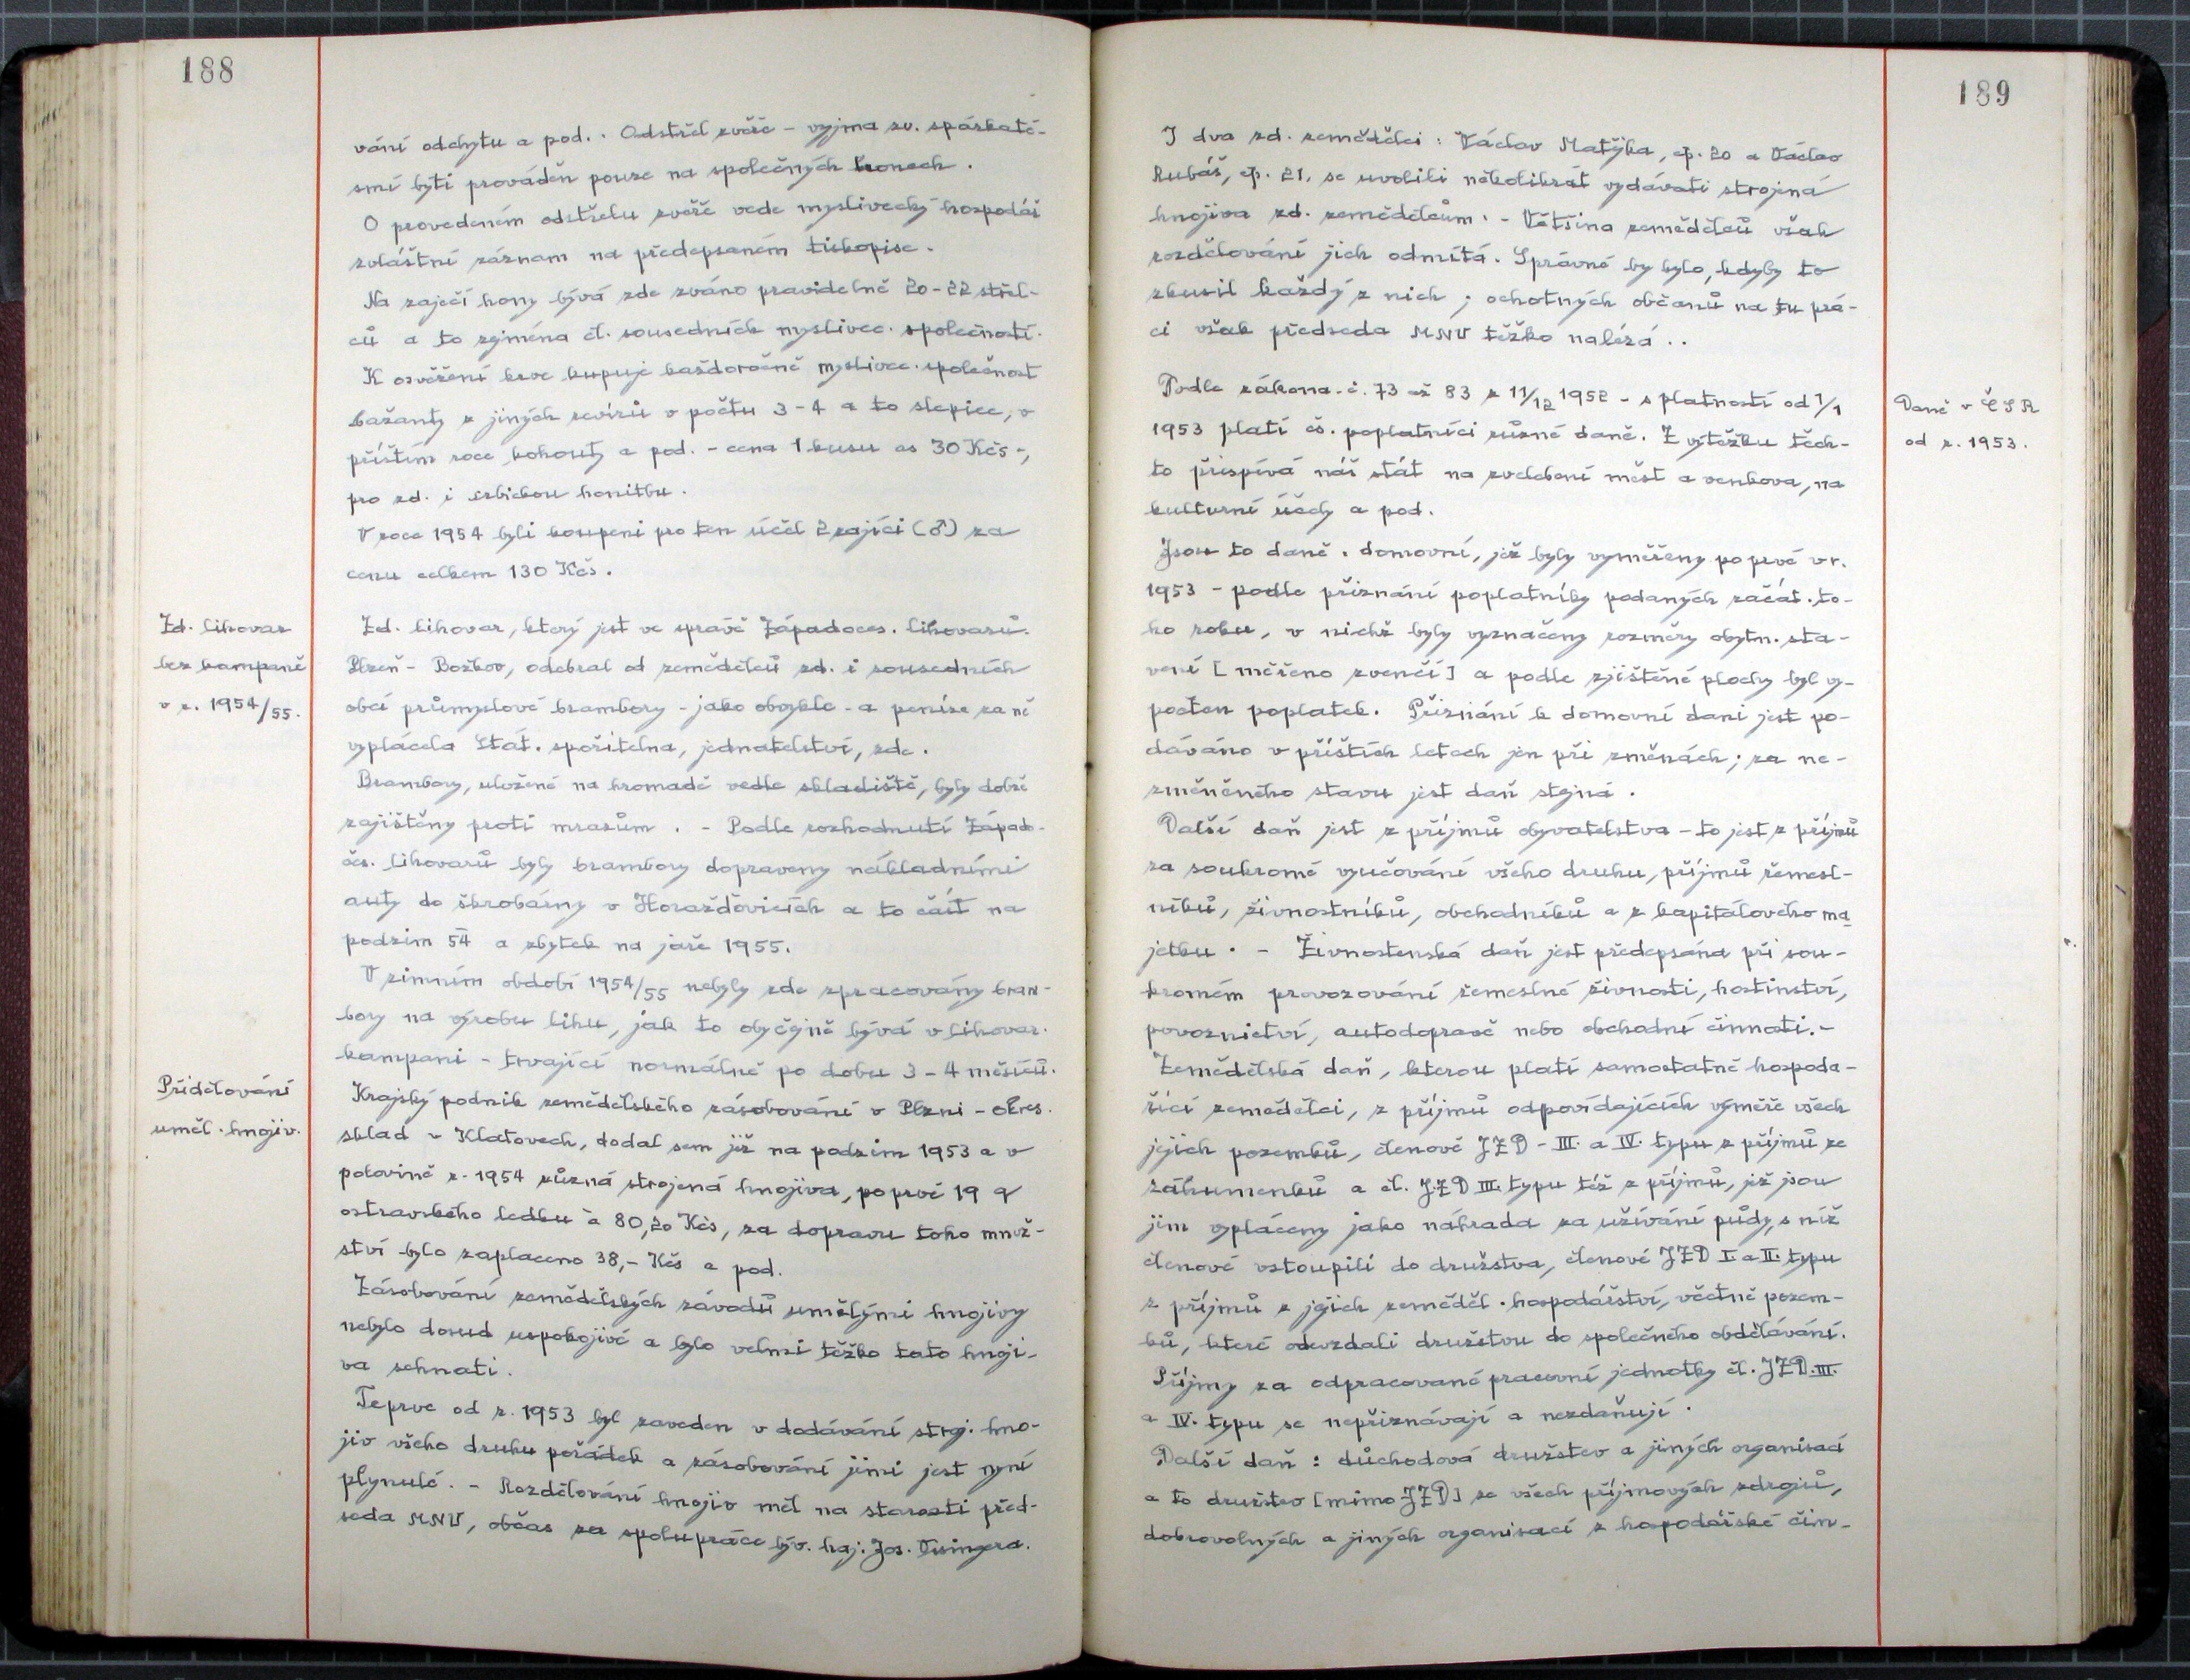 188
vání odchytu a pod. . Odstřel zvěře - vyjma zv. spárkaté-
smí býti prováděn pouze na společných honech .
O provedeném odstřelu zvěře vede myslivecký hospodář
zvláštní záznam na předepsaném tiskopise .
Na zaječí hony bývá zde zváno pravidelně 20-22 střel-
ců a to zejména čl. sousedních myslivec. společností.
K osvěžení krve kupuje každoročně myslivec. společnost
bažanty z jiných revírů v počtu 3-4 a to slepice, v
příštím roce kohouty a pod. - cena 1 kusu as 30 Kčs -,
pro zd. i srbickou honitbu .
V roce 1954 byli koupeni pro ten účel 2 zajíci (♂) za
cenu celkem 130 Kčs .
Zd. lihovar
bez kampaně
v r. 1954/55.
Zd. lihovar, který jest ve správě Západočes. lihovarů.
Plzeň - Božkov, odebral od zemědělců zd. i sousedních
obcí průmyslové brambory - jako obvykle - a peníze za ně
vyplácela Stát. spořitelna, jednatelství, zde .
Brambory, uložené na hromadě vedle skladiště, byly dobře
zajištěny proti mrazům . - Podle rozhodnutí Západo-
čes. lihovarů byly brambory dopraveny nákladními
auty do škrobárny v Horažďovicích a to část na
podzim 54 a zbytek na jaře 1955.
V zimním období 1954/55 nebyly zde zpracovány bram-
bory na výrobu lihu, jak to obyčejně bývá v lihovar.
kampani - trvající normálně po dobu 3 - 4 měsíců.
Přidělování
uměl. hnojiv.
Krajský podnik zemědělského zásobování v Plzni - okres.
sklad v Klatovech, dodal sem již na podzim 1953 a v
polovině r. 1954 různá strojená hnojiva, po prvé 19 q
ostravského ledku à 80,20 Kčs, za dopravu toho množ-
ství bylo zaplaceno 38,- Kčs a pod.
Zásobování zemědělských závodů umělými hnojivy
nebylo dosud uspokojivé a bylo velmi těžko tato hnoji-
va sehnati .
Teprve od r. 1953 byl zaveden v dodávání stroj. hno-
jiv všeho druhu pořádek a zásobování jimi jest nyní
plynulé. - Rozdělování hnojiv měl na starosti před-
seda MNV, občas za spolupráce býv. haj. Jos.
189
I dva zd. zemědělci : Václav Matějka, čp. 20 a Václav
Rubáš, čp. 21, se uvolili několikrát vydávati strojená
hnojiva zd. zemědělcům . - Většina zemědělců však
rozdělování jich odmítá. Správné by bylo, kdyby to
zkusil každý z nich ; ochotných občanů na tu prá-
ci však předseda MNV těžko nalézá . .
Daně v ČSR
od r. 1953 .
Podle zákona č. 73 až 83 z 11/12 1952 - s platností od 1/1
1953 platí čs. poplatníci různé daně. Z výtěžku těch-
to přispívá náš stát na zvelebení měst a venkova, na
kulturní účely a pod.
Jsou to daně . domovní, jež byly vyměřeny po prvé v r.
1953 - podle přiznání poplatníky podaných začát. to-
ho roku, v nichž byly vyznačeny rozměry obytn. sta-
vení [ měřeno zvenčí ] a podle zjištěné plochy byl vy-
počten poplatek. Přiznání k domovní dani jest po-
dáváno v příštích letech jen při změnách ; za ne-
změněného stavu jest daň stejná .
Další daň jest z příjmů obyvatelstva - to jest z příjmů
za soukromé vyučování všeho druhu, příjmů řemesl-
níků, živnostníků, obchodníků a z kapitálového ma
jetku . - Živnostenská daň jest předepsána při sou-
kromém provozování řemeslné živnosti, hostinství,
povoznictví, autodopravě nebo obchodní činnosti. -
Zemědělská daň, kterou platí samostatně hospoda-
řící zemědělci, z příjmů odpovídajících výměře všech
jejich pozemků, členové JZD - III. a IV. typu z příjmů ze
záhumenků a čl. JZD III. typu též z příjmů, jež jsou
jim vypláceny jako náhrada za užívání půdy, s níž
členové vstoupili do družstva, členové JZD I. a II. typu
z příjmů z jejich zeměděl. hospodářství, včetně pozem-
ků, které odevzdali družstvu do společného obdělávání.
Příjmy za odpracované pracovní jednotky čl. JZD. III.
a IV. typu se nepřiznávají a nezdaňují .
Další daň : důchodová družstev a jiných organisací
a to družstev [mimo JZD] ze všech příjmových zdrojů,
dobrovolných a jiných organisací z hospodářské čin-